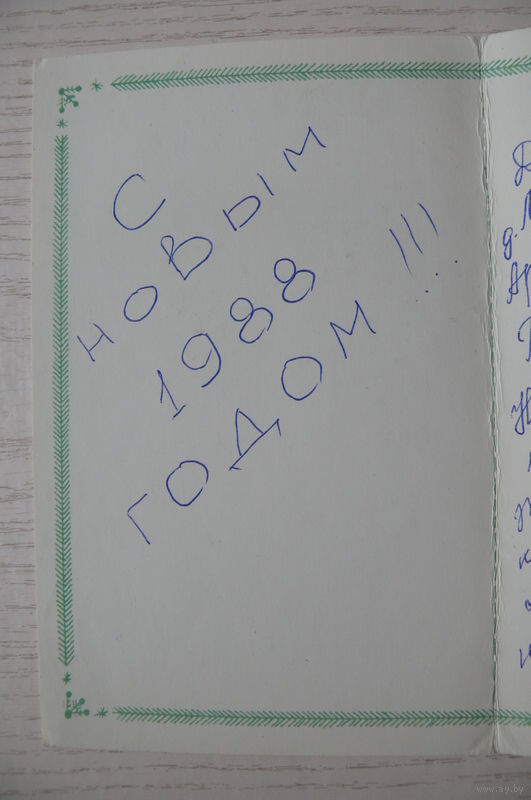 С
новым
1988
годом!!!
www.ay.by